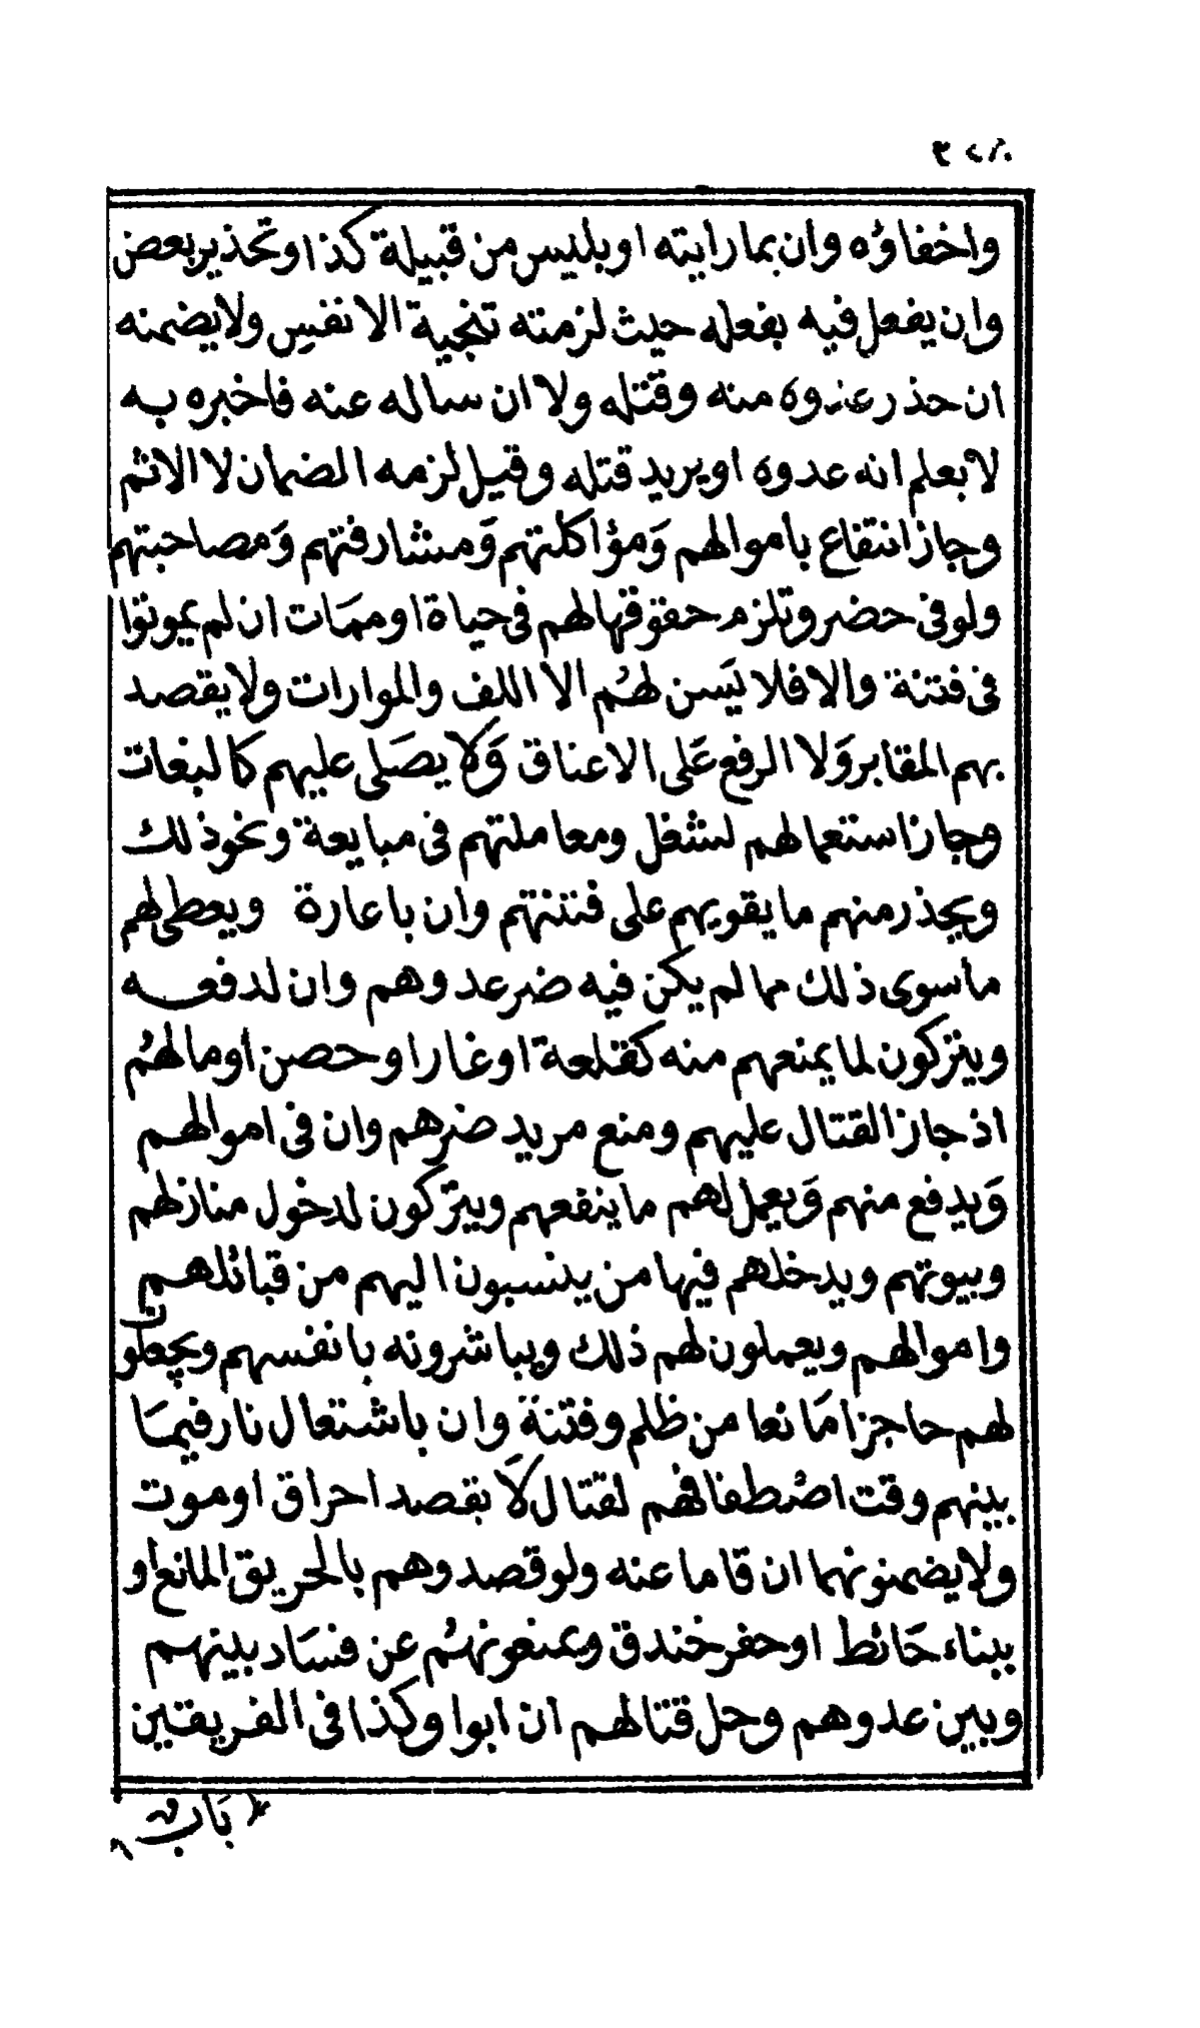 واخفاؤه وان بمارايته اوبلبس من قبيلة كذا اوتحذير بعض
وان يفعل فيه بفعله حيث لزمته تنجية الانفس ولايضمنه
ان حذر عدوه منه وقتله ولا ان ساله عنه فاخبره به
لابعلم انه عدوه اويريد قتله وقيل لزمه الضمان لا الاثم
وجاز انتفاع باموالهم وَمؤاكلتهم وَمشارفتهم وَمصاحبتهم
ولوفى حضر وتلزم حقوقها لهم فى حياة اوممَات ان لم يموتوا
فى فتنة والا فلا يَسن لهُم الا اللف والموارات ولا يقصد
بهم المقابر وَلا الرفع عَلى الاعناق وَلا يصَلى عليهم كالبغات
وجاز استعمالهم لشغل ومعاملتهم فى مبايعة ونحو ذلك
ويحذر منهم ما يقويهم على فتنتهم وان باعارة ويعطى لهم
ما سوى ذلك مما لم يكن فيه ضر عدوهم وان لدفعه
ويتركون لما يمنعهم منه كقلعة اوغار اوحصن اومالهُم
اذ جاز القتال عليهم ومنع مريد ضرهم وان فى اموالهم
وَيدفع منهم وَيعمل لهم ما ينفعهم ويتركون لدخول منازلهم
وبيوتهم ويدخلهم فيها من ينسبون اليهم من قبائلهم
واموالهم ويعملون لهم ذلك ويباشرونه بانفسهم ويجعلون
لهم حاجزا مَانعا من ظلم وفتنة وان باشتعال نار فيمَا
بينهم وقت اصْطفافهم لقتال لَا بقصد احراق اوموت
ولايضمنونهما ان قاما عنه ولوقصدوهم بالحريق المانع او
ببناء حَائط اوحفر خندق ويمنعونهُم عن فسَاد بينهم
وبين عدوهم وحل قتالهم ان ابوا وكذا فى الفريقين
بَاب